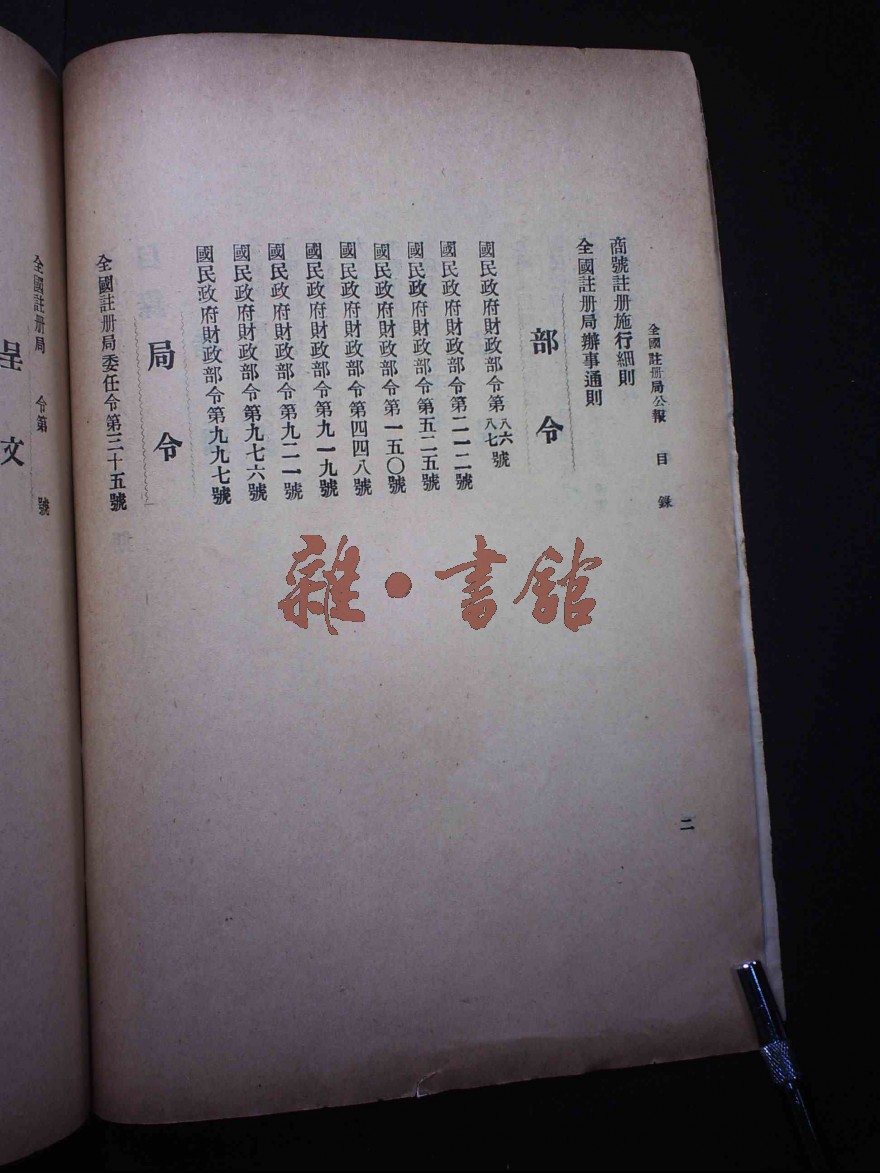 全國註册局公報　目　錄
二
商號註册施行細則
全國註册局辦事通則
部令
國民政府財政部令第八六八七號
國民政府財政部令第二一二號
國民政府財政部令第五二五號
國民政府財政部令第一五〇號
國民政府財政部令第四四八號
國民政府財政部令第九一九號
國民政府財政部令第九二一號
國民政府財政部令第九七六號
國民政府財政部令第九九七號
局令
全國註册局委任令第三十五號
全國註册局　令第　號
呈文
雜·書館